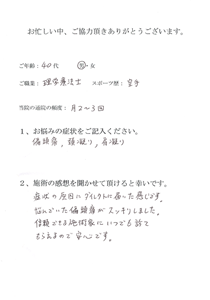 お忙しい中、ご協力頂きありがとうございます。
ご年齢：40代 男・女
ご職業：理学療法士 スポーツ歴：空手
当院の通院の頻度：月2～3回
1、お悩みの症状をご記入ください。
偏頭痛，首凝り，肩凝り
2、施術の感想を聞かせて頂けると幸いです。
症状の原因にダイレクトに届いた感じです。
悩んでいた偏頭痛がスッキリしました。
信頼できる施術家にいつでも診て
もらえるので安心です。